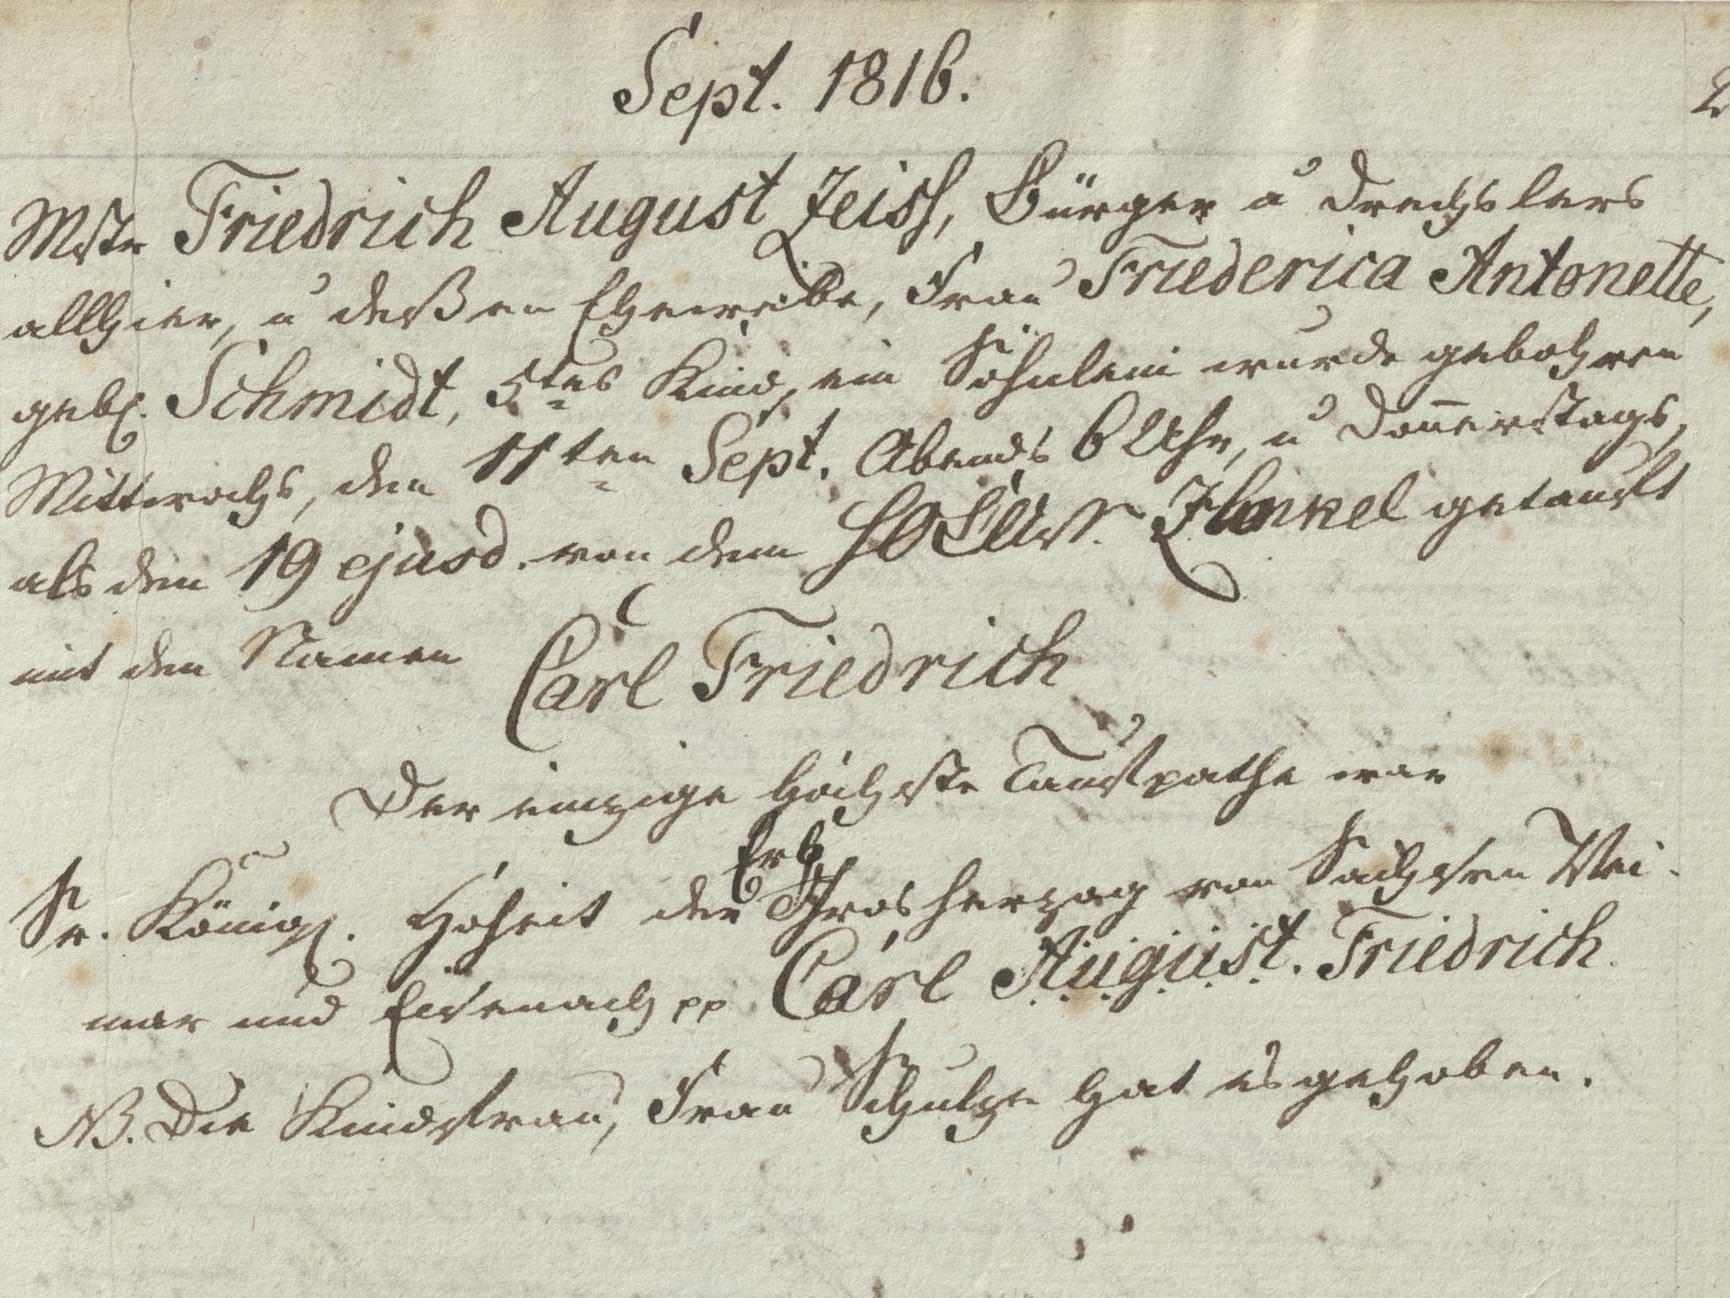 Sept. 1816.
Mstr Friedrich August Zeiss, Bürger u Drechslers
allhier, u deßen Eheweibe, Frau Friederica Antonette,
gebl. Schmidt, 5tes Kind, ein Söhnlein wurde gebohren
Mittwochs, den 11ten Sept. Abends 6 Uhr, u Donnerstags,
als den 19 ejusd. von dem getauft
mit den Namen Carl Friedrich
Der einzige höchste Taufpathe war
Sr. Königl. Hoheit der Erb Grosherzog von Sachsen Wei-
mar und Eisenach pp Carl August. Friedrich.
NB. Die Kindfrau, Frau Schulze hat es gehoben.